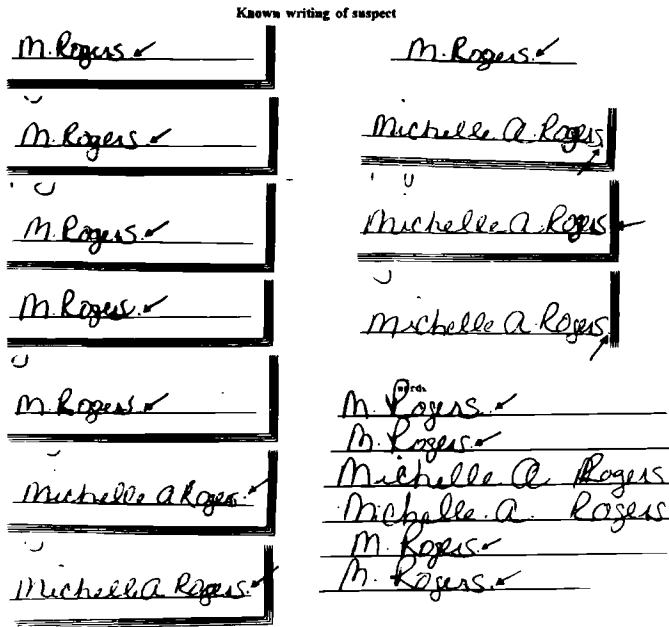 Known writing of suspect
M. Rogers.
M. Rogers.
M. Rogers.
M. Rogers.
M. Rogers.
Michelle A Rogers.
Michelle A Rogers.
M. Rogers.
Michelle A. Rogers
Michelle A. Rogers
Michelle A. Rogers.
M. Rogers.
M. Rogers.
Michelle A Rogers
Michelle. A. Rogers
M. Rogers.
M. Rogers.